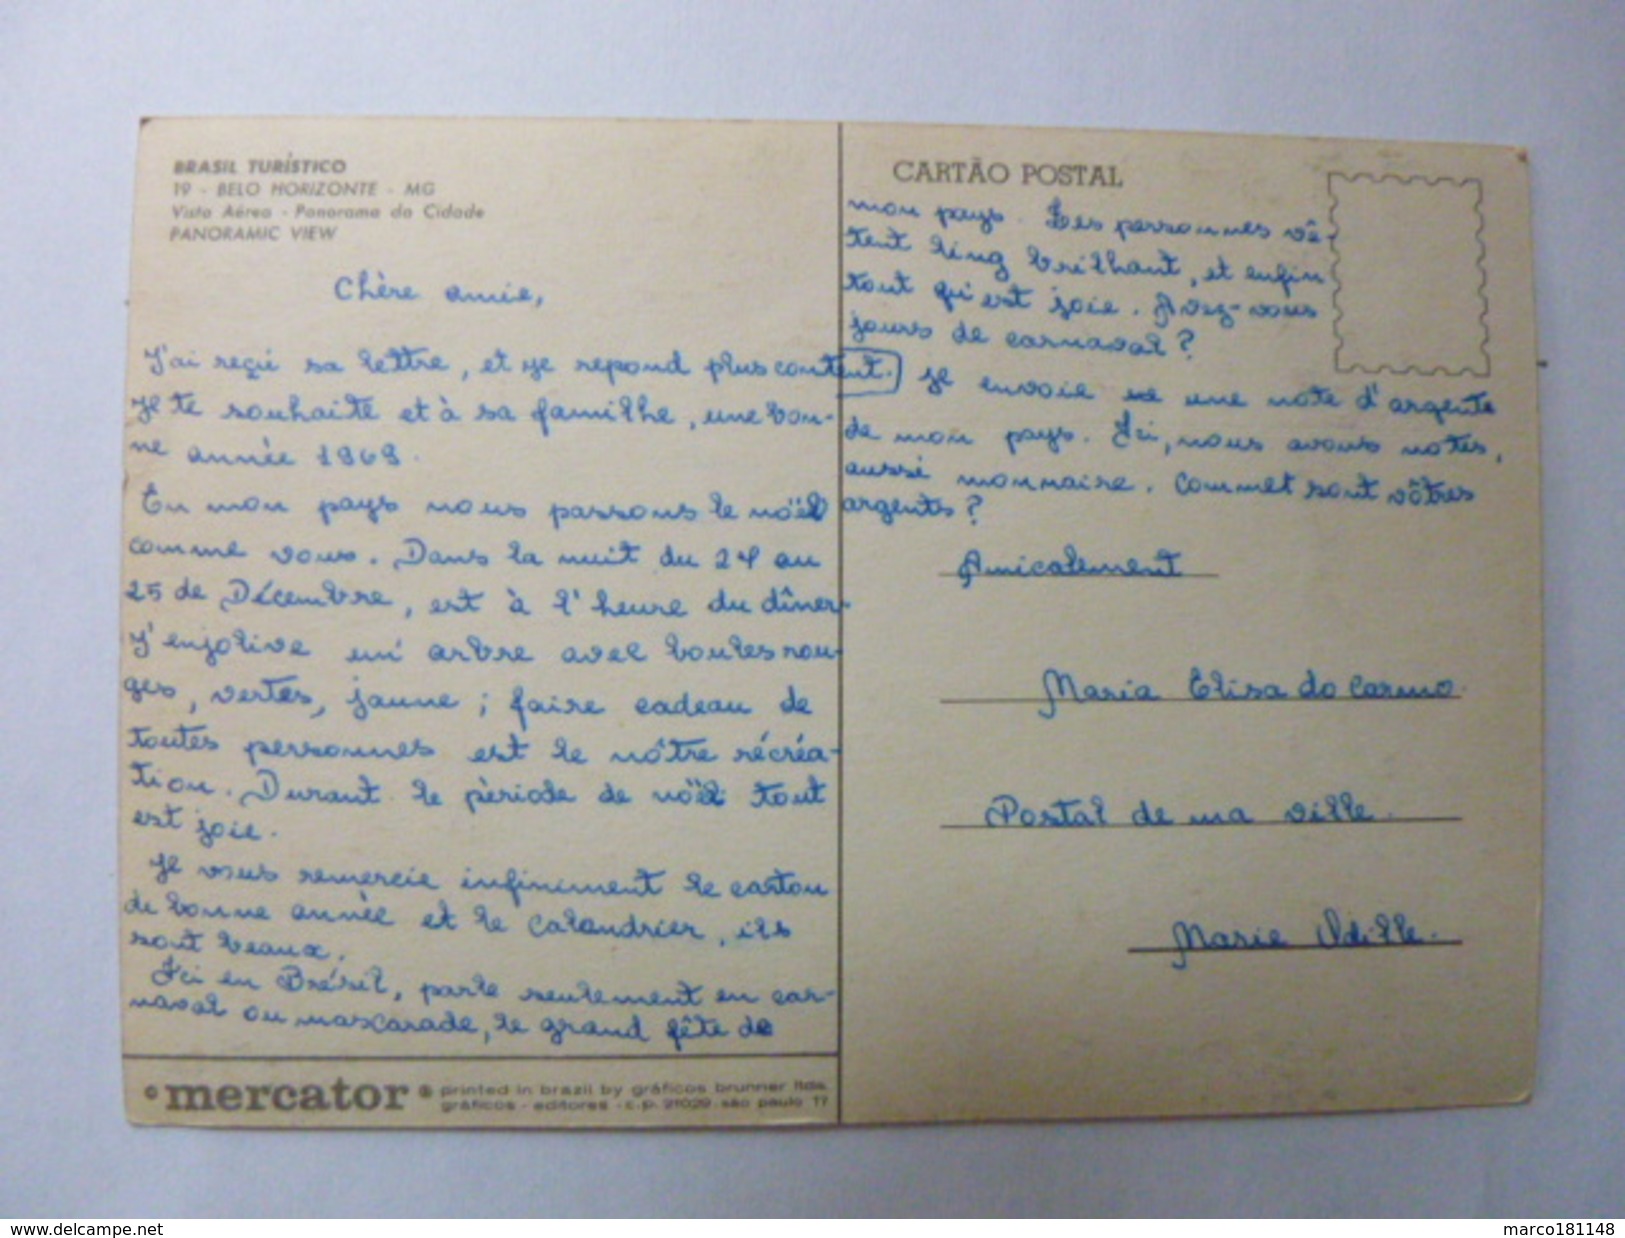 BRASIL TURÍSTICO
19 - BELO HORIZONTE - MG
Vista Aérea - Panorama da Cidade
PANORAMIC VIEW
Chère amie,
J'ai reçu sa lettre, et je repond plus content.
Je te souhaite et à sa familhe, une bon-
ne année 1969.
En mon pays nous passons le noël
comme vous. Dans la nuit du 24 au
25 de Décembre, est à l'heure du dîner.
J'enjolive un arbre avec boules rou-
ges, vertes, jaune; faire cadeau de
toutes personnes est le nôtre récréa-
tion. Durant le pèriode de noël tout
est joie.
Je vous remercie infiniment le carton
de bonne annèe et le calandrier, ils
sont beaux.
Ici en Brésil, parle seulement en car-
naval ou mascarade, le grand fête de
CARTÃO POSTAL
mon pays. Les personnes vê-
tent brilhant, et enfin
tout qu'est joie. Avez-vous
jours de carnaval?
Je envoie une note d'argente
de mon pays. Ici, nous avons notes,
aussi monnaire. Commet sont vôtres
argents?
Amicalement
Maria Elisa do Carmo.
Postal de ma ville.
Marie Odille.
mercator ® printed in brazil by gráficos brunner ltda.
gráficos - editores - c.p. 21029 - são paulo 17
www.delcampe.net
marco181148